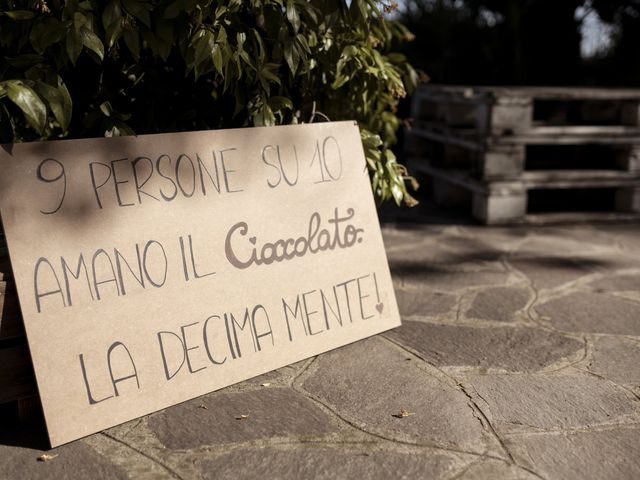 9 PERSONE SU 10
AMANO IL Cioccolato.
LA DECIMA MENTE!